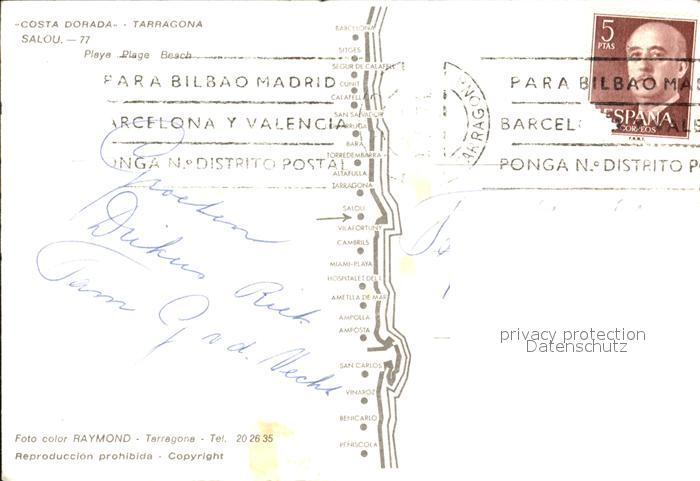 "COSTA DORADA" - TARRAGONA
SALOU. - 77
Playa Plage Beach
PARA BILBAO MADRID
BARCELONA Y VALENCIA
PONGA N.º DISTRITO POSTAL
Groeten
Drikus Riek
Tam G v.d. Vecht
BARCELONA
SITGES
SEGUR DE CALAFELL
CUNIT
CALAFELL
SAN SALVADOR
BARA
TORREDEMBARRA
ALTAFULLA
TARRAGONA
SALOU
VILAFORTUNY
CAMBRILS
MIAMI-PLAYA
HOSPITALET DEL I
AMETLLA DE MAR
AMPOLLA
AMPOSTA
SAN CARLOS
VINAROZ
BENICARLO
PEÑISCOLA
5
PTAS
ESPAÑA
CORREOS
PARA BILBAO MAD
BARCEL
PONGA N.º DISTRITO P
privacy protection
Datenschutz
Foto color RAYMOND - Tarragona - Tel. 20 26 35
Reproducción prohibida - Copyright